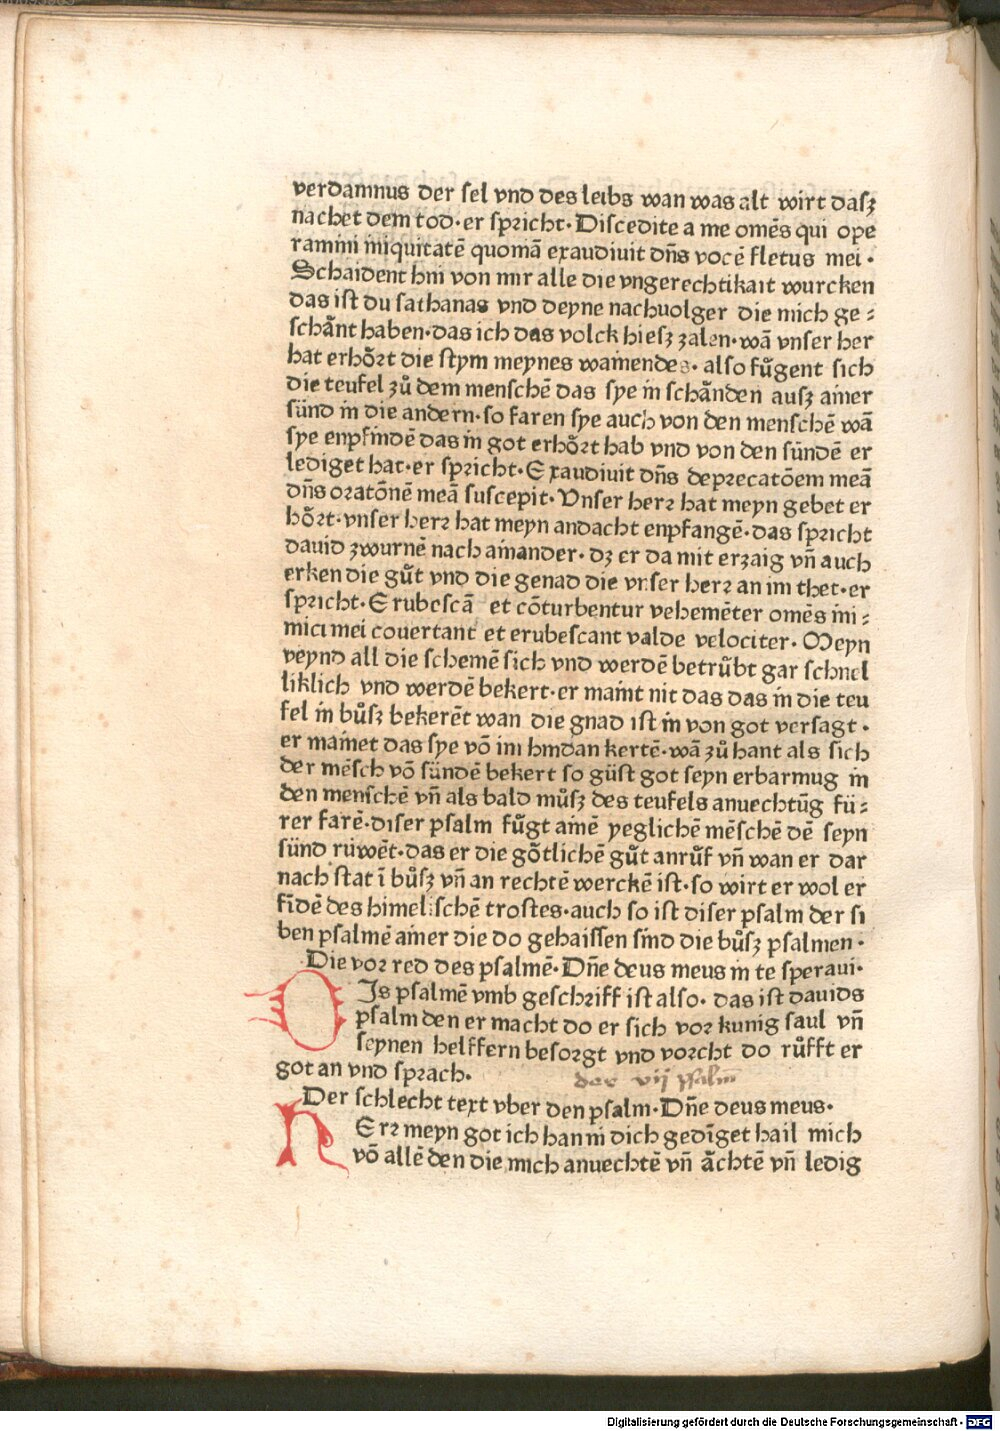 verdamnus der sel vnd des leibs wan was alt wirt dasz
nachet dem tod·er spricht·Discedite a me omēs qui ope
ramini iniquitatē quomā exaudiuit dn̄s vocē fletus mei·
Schaident hin von mir alle die vngerechtikait wurcken
das ist du sathanas vnd deyne nachuolger die mich ge⸗
schånt haben·das ich das volck hiesz zalen·wā vnser her
hat erhǒrt die stym meynes wainendes·also fůgent sich
die teufel zů dem menschē das sye in schånden ausz ainer
sünd in die andern·so faren sye auch von den menschē wā
sye enpfindē das in got erhǒrt hab vnd von den sündē er
lediget hat·er spricht·Exaudiuit dn̄s deprecatōem meā
dn̄s oratōnē meā suscepit·Vnser herr hat meyn gebet er
hǒrt·vnser herr hat meyn andacht enpfangē·das spricht
dauid zwurnē nach ainander·dz er da mit erzaig vn̄ auch
erken die gůt vnd die genad die vnser herr an im thet·er
spricht·Erubescā et cōturbentur vehemēter omēs ini⸗
mici mei couertant et erubescant valde velociter·Meyn
veynd all die schemē sich vnd werdē betrůbt gar schnel
liklich vnd werdē bekert·er maint nit das das in die teu
fel in bůsz bekerēt wan die gnad ist in von got versagt·
er mainet das sye vō im hindan kertē·wā zů hant als sich
der mēsch vō sündē bekert so güst got seyn erbarmug in
den menschē vn̄ als bald můsz des teufels anuechtūg fü⸗
rer farē·diser psalm fůgt ainē yeglichē mēschē dē seyn
sünd rüwēt·das er die gǒtlichē gůt anrůf vn̄ wan er dar
nach stat ī bůsz vn̄ an rechtē werckē ist·so wirt er wol er
fīdē des himelischē trostes·auch so ist diser psalm der si
ben psalmē ainer die do gehaissen sind die bůsz psalmen·
Die vor red des psalmē·Dn̄e deus meus in te speraui·
DIs psalmē vmb geschriff ist also·das ist dauids
psalm den er macht do er sich vor kunig saul vn̄
seynen helffern besorgt vnd vorcht do růfft er
got an vnd sprach·
der vij psalm
Der schlecht text vber den psalm·Dn̄e deus meus·
HErr meyn got ich han in dich gedīget hail mich
vō allē den die mich anuechtē vn̄ åchtē vn̄ ledig
Digitalisierung gefördert durch die Deutsche Forschungsgemeinschaft - DFG